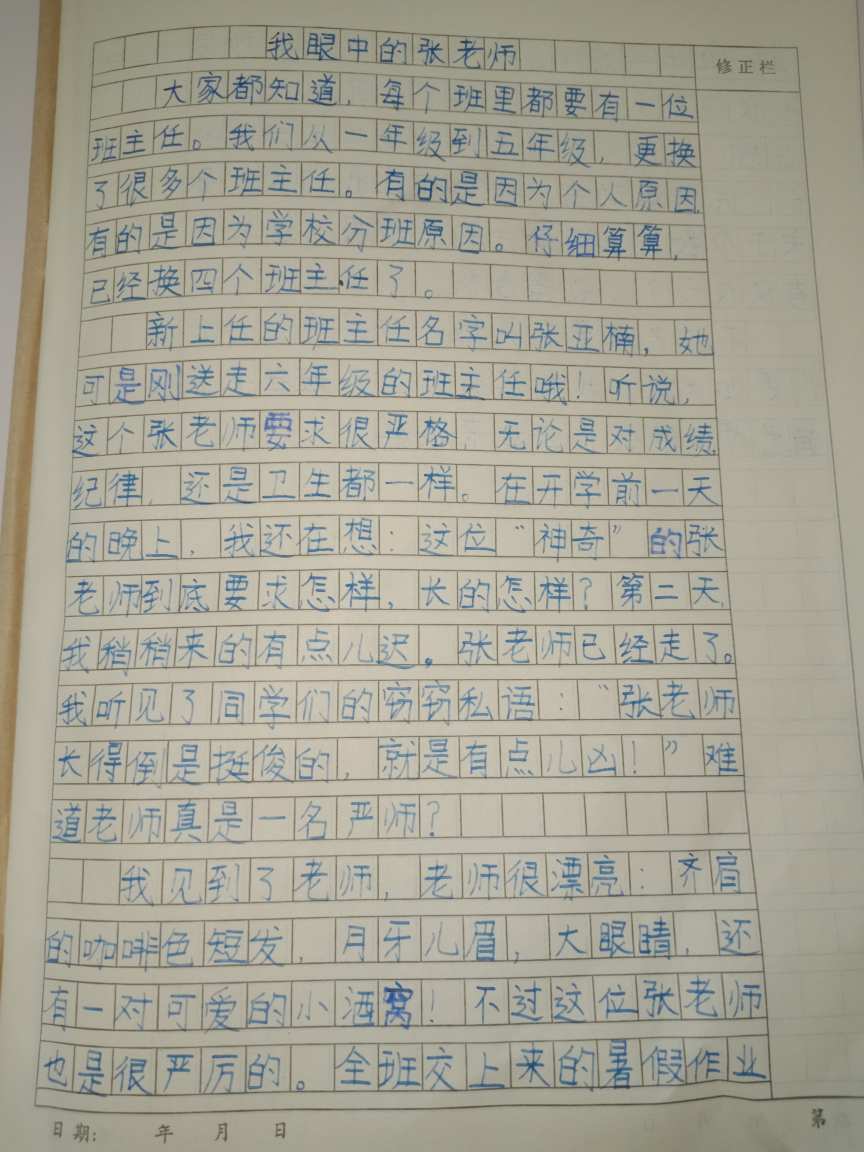 我眼中的张老师
修正栏
大家都知道，每个班里都要有一位
班主任。我们从一年级到五年级，更换
了很多个班主任。有的是因为个人原因，
有的是因为学校分班原因。仔细算算，
已经换四个班主任了。
新上任的班主任名字叫张亚楠，她
可是刚送走六年级的班主任哦！听说，
这个张老师要求很严格，无论是对成绩，
纪律，还是卫生都一样。在开学前一天
的晚上，我还在想：这位“神奇”的张
老师到底要求怎样，长的怎样？第二天，
我稍稍来的有点儿迟。张老师已经走了。
我听见了同学们的窃窃私语：“张老师
长得倒是挺俊的，就是有点儿凶！”难
道老师真是一名严师？
我见到了老师，老师很漂亮：齐肩
的咖啡色短发，月牙儿眉，大眼睛，还
有一对可爱的小酒窝！不过这位张老师
也是很严厉的。全班交上来的暑假作业
日期： 年 月 日
第